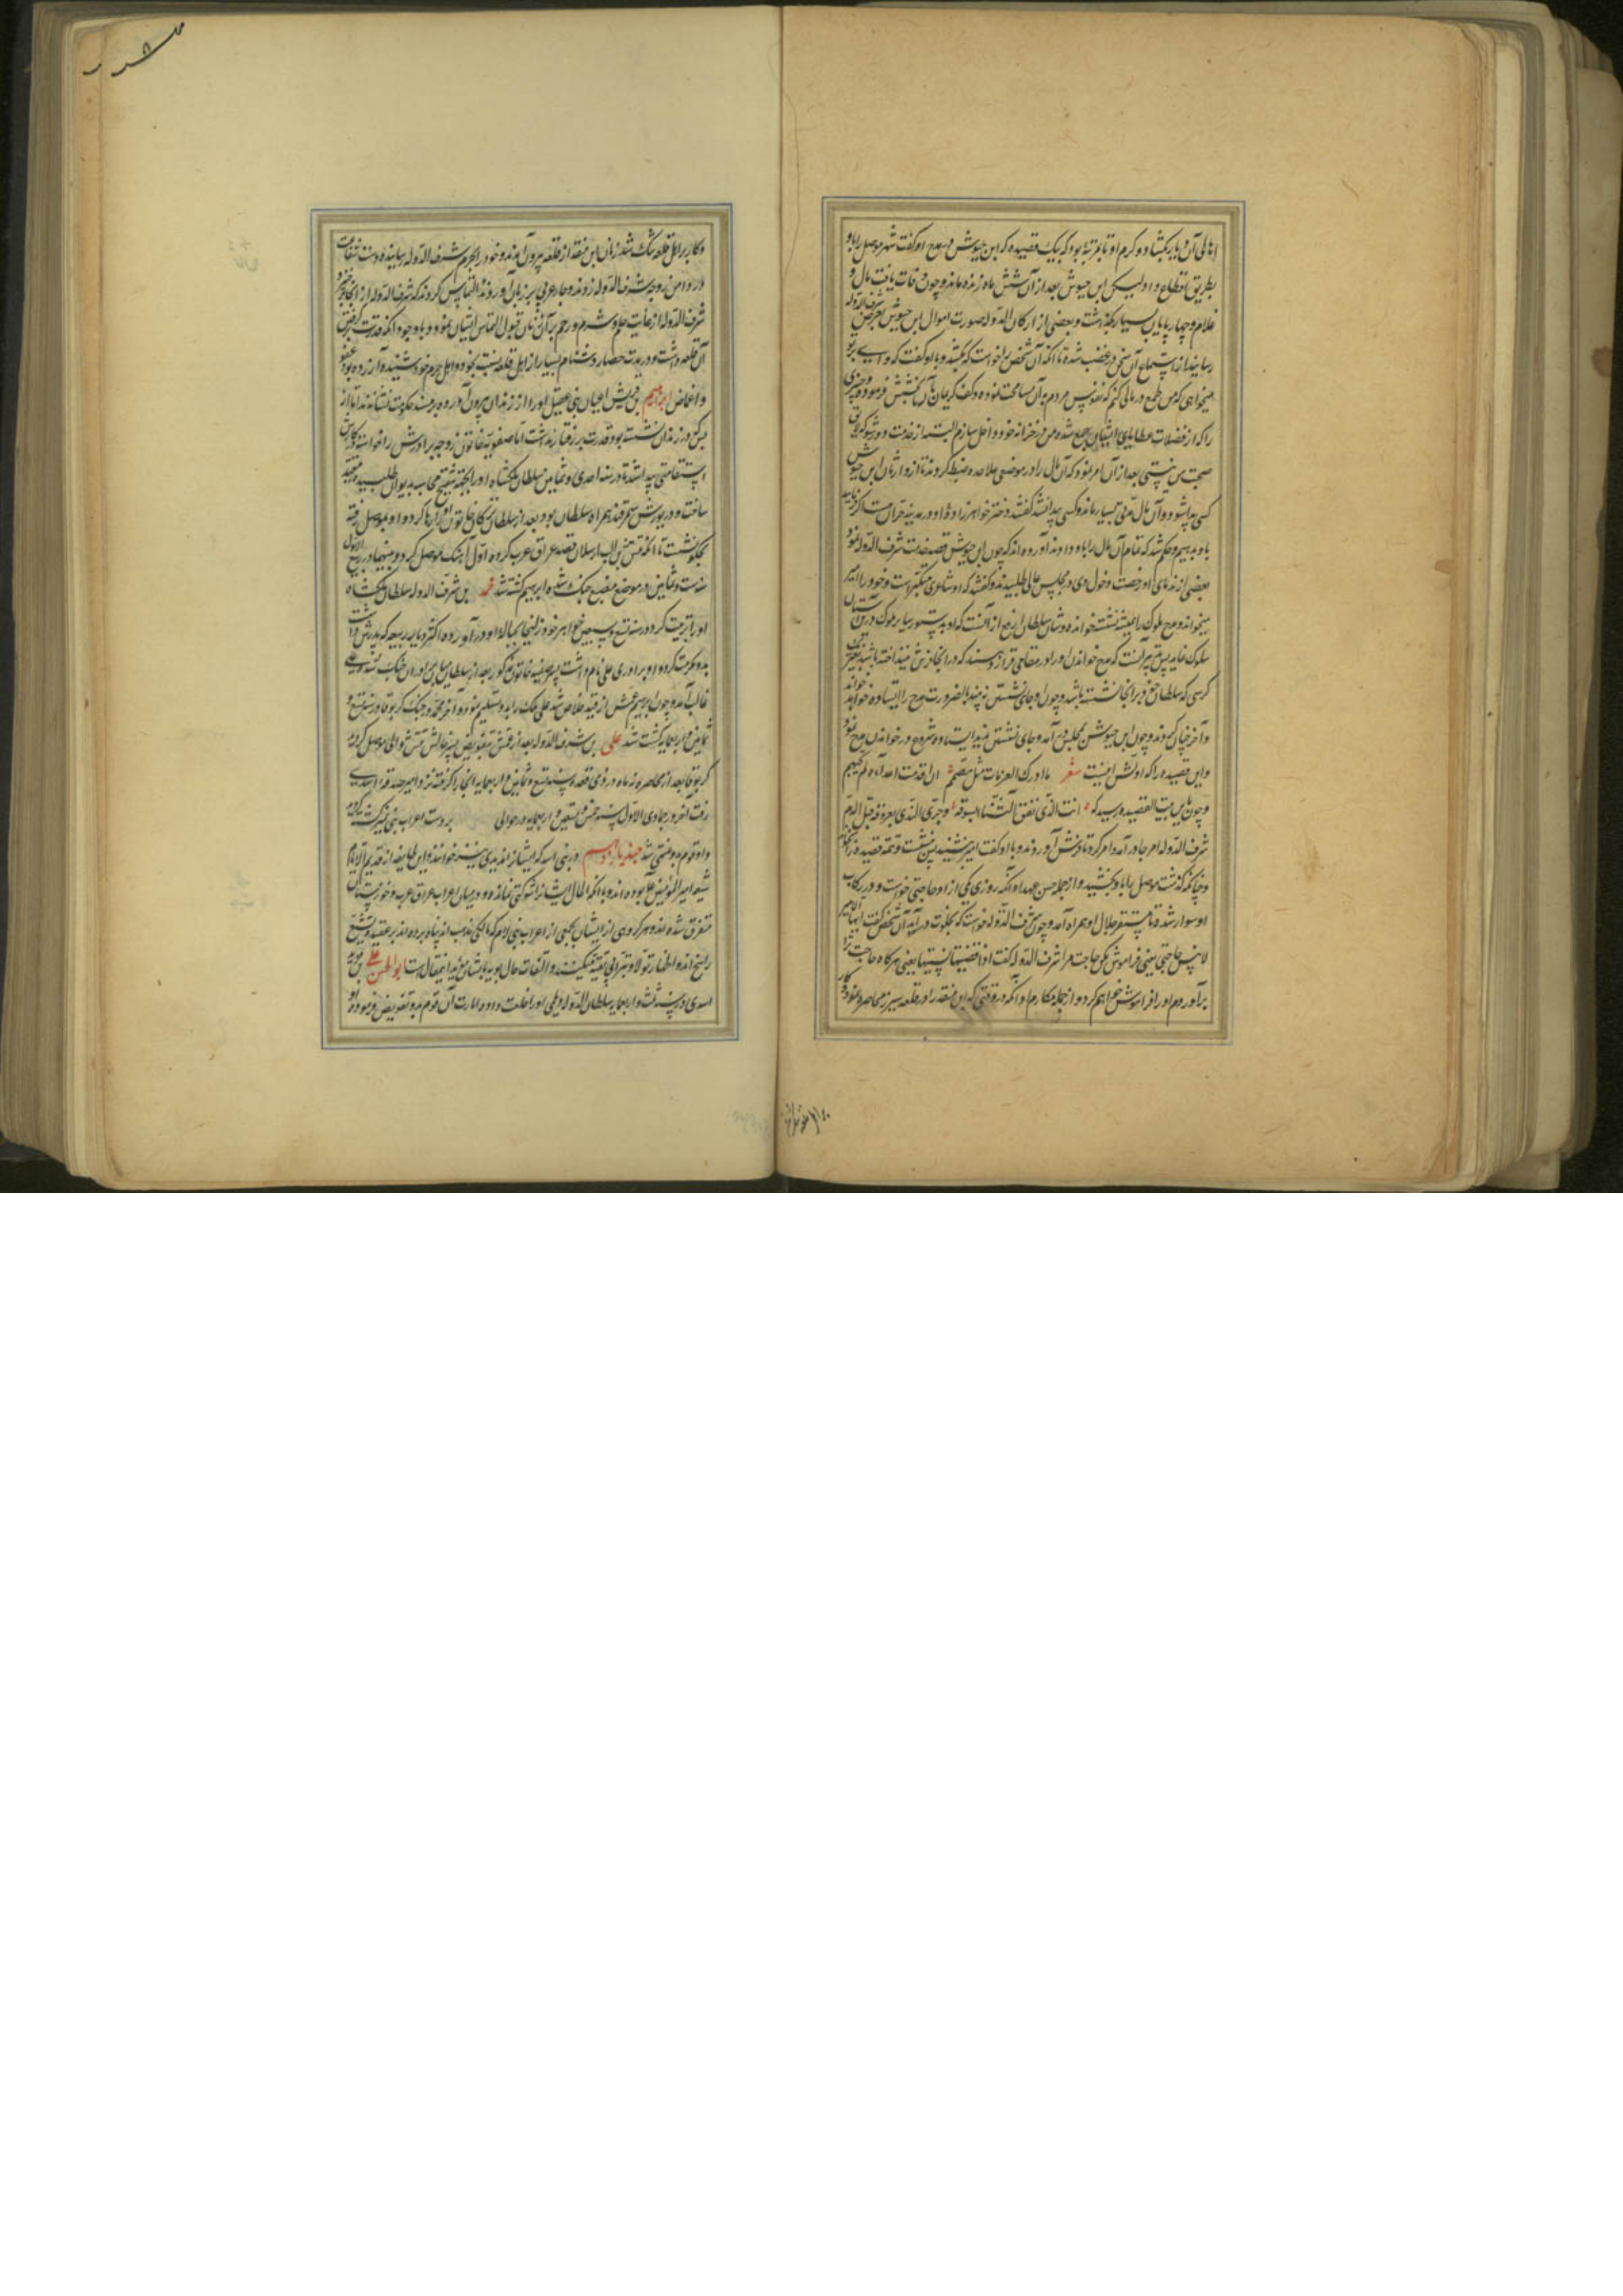 اهالی آن دیار بکشاد و کرم او تا بمرتبهٔ بود که بیک قصیده که ابن حیوش در مدح او گفت شهر موصل را باو
بطریق اقطاع داد لیکن ابن حیوش بعد از آن شش ماه زنده ماند و چون وفات یافت مال و
غلام و چهارپایان بسیار گذاشت و بعضی از ارکان الدوله صورت اموال ابن حیوش بعرض شرف الدوله
رسانید از استماع آن سخن در غضب شده تا آنکه آن شخص را خواست که بکشد و باو گفت که وای بر تو
میخواهی که من طمع در مالی کنم که نفوس مردم به آن مسامحت نموده و کف کریمان به آن بخشش فرموده و چیزی
را که از فضلات عطایای ایشان جمع شده من در خزانه خود داخل سازم البته از خدمت من دور شو که لایق
صحبت من نیستی بعد از آن امر نمود که آن مال را در موضعی علاحده ضبط کردند تا از وارثان ابن حیوش
کسی پیدا شود و آن مال مدتی بسیار ماند و کسی پیدا نشد گفتند دختر خواهرزادهٔ او در مدینه حران هست اگر فرمایند
باو بدهیم حکم شد که تمام آن مال را باو دادند آورده اند که چون ابن حیوش قصد خدمت شرف الدوله نمود
بعضی از ندمای او رخصت دخول وی در مجلس عالی طلبیدند و گفتند که او شاعری متکبر است و خود را امیر
میخواند و مدح ملوک را همیشه نشسته خوانده و شان سلطان ارفع از آنست که او بدستور سایر ملوک در این آستان
سلوک نماید پس تدبیر آنست که مدح خواندن او را در مقامی قرار دهند که در آنجا فرش نینداخته باشند بغیر یک
کرسی که سلطان خود بر آنجا نشسته باشد و چون او جای نشستن نه بیند بالضرورت مدح را ایستاده خواند
و آخر چنان کردند و چون ابن حیوش بمجلس در آمد و جای نشستن ندید ایستاده شروع در خواندن مدح نمود
و این قصیده را که اولش اینست شعر ما ادرک الطلبات مثل مصمم ان اقدمت اعداه لم یحجم
و چون باین بیت القصیده رسید که انت الذی نفق الثناء بسوقه و جری الندی بعروقه قبل الدم
شرف الدوله از جا در آمد و امر کرد تا فرش آوردند و باو گفت امیر بنشیند پس نشست و تتمه قصیده را خواند
و چنانکه گذشت موصل را باو بخشید و از جمله حسن عهد او آنکه روزی یکی از او حاجتی خواست و در رکاب
او سوار شد و تا مستقر جلال او همراه آمد و چون شرف الدوله خواست که بخلوت در آید آن شخص گفت ایها الامیر
لا تنس حاجتی یعنی فراموش مکن حاجت مرا شرف الدوله گفت اذا قضیتها نسیتها یعنی هرگاه حاجت ترا
برآوردم او را فراموش خواهم کرد و از جمله مکارم او آنکه در وقتی که ابن منقذ را در قلعه شیزر محاصره نمود و کار
و کار بر اهل قلعه تنگ شد زنان ابن منقذ از قلعه بیرون آمدند و خود را بحرم شرف الدوله رسانیده دست شفاعت
در دامن زوجه شرف الدوله زدند و عربی بر زبان آوردند التماس کردند که شرف الدوله از آنجا برخیزد
شرف الدوله از غایت حلم و شرم و رحم بر آن زنان قبول التماس ایشان نمود و با وجود آنکه قدرت گرفتن
آن قلعه داشت و در مدت حصار دشنام بسیار از اهل قلعه نسبت بخود و اهل حرم خود شنیده و آزرده بود عفو
و اغماض ابراهیم بن قریش اعیان بنی عقیل او را از زندان بیرون آورده بر مسند حکومت نشاندند اما از
بس که در زندان نشسته بود قدرت بر رفتار نداشت اما صفیه خاتون زوجه برادرش را خواسته و کارش
استقامتی پیدا شد تا در سنه احدی و ثمانین سلطان ملکشاه او را بجهت تنقیح محاسبه بدیوان طلبید و مقید
ساخت و در یورش سمرقند همراه سلطان بود بعد از سلطان ترکان خاتون او را رها کرد و او بموصل رفته
بحکومت نشست تا آنکه تتش الب ارسلان قصد عراق عرب کرده اول آهنگ موصل کرد و بینهما در ربیع الاول
سنه ست و ثمانین در موضع مضیع جنگ شده ابراهیم کشته شد محمد بن شرف الدوله سلطان ملکشاه
او را تربیت کرد و در سنه تسع و سبعین خواهر خود زلیخا بحباله او در آورده اکثر دیار ربیعه که پدرش داشت
بدو مکرمت کرد و او برادری علی نام داشت پسر صفیه خاتون مذکور بعد از سلطان میان برادران جنگ شد و علی
غالب آمد و چون ابراهیم عمش از قید خلاص شد علی ملک را بدو تسلیم نمود و آخر محمد در جنگ کربوقا در سنه تسع و
ثمانین و اربعمایه کشته شد علی بن شرف الدوله بعد از عمش بتفویض پسر خالش تتش والی موصل گردید
کربوقا بعد از محاصره نه ماه در ذی قعده سنه تسع و ثمانین و اربعمایه آنجا را گرفته نزد امیر صدقه اسدی
رفت آخر در جمادی الاول سنه خمس و تسعین و اربعمایه در حوالی بر دست اعراب بنی نمیر کشته گردید
و او قوم بدو منتهی شد جند یازدهم در بنی اسد که ایشانرا مزیدی نیز خوانند و این طایفه از قدیم الایام
شیعه امیر المؤمنین علی بوده اند و با آنکه الحال ایشانرا شوکتی نمانده و در میان اعراب عراق عرب و خوزستان
متفرق شده اند و هر گروهی از ایشان بجمعی از اعراب بنی لام که مالکی مذهب اند پناه برده اند بر عقیده تشیع
راسخ اند و اظهار تولا و تبرا بی تقیه میکنند و التفات حال موید باشان مؤید این مقال است ابو الحسن علی بن مزید
اسدی در سنه ثلث و اربعمایه سلطان الدوله دیلمی او را خلعت داد و امارت آن قوم بدو تفویض فرمود و او